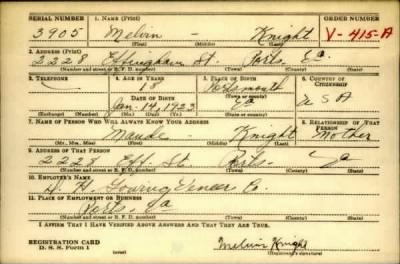 SERIAL NUMBER 1. NAME (Print) ORDER NUMBER
3905 Melvin - Knight V-415-A
(First) (Middle) (Last)
2. ADDRESS (Print)
2228 Effingham St. Ports. Va.
(Number and street or R. F. D. number) (Town) (County) (State)
3. TELEPHONE 4. AGE IN YEARS 5. PLACE OF BIRTH 6. COUNTRY OF CITIZENSHIP
18 Portsmouth
DATE OF BIRTH (Town or county)
Jan. 14, 1923 Va U S A
(Exchange) (Number) (Mo.) (Day) (Yr.) (State or country)
7. NAME OF PERSON WHO WILL ALWAYS KNOW YOUR ADDRESS 8. RELATIONSHIP OF THAT PERSON
Maude - Knight Mother
(Mr., Mrs., Miss) (First) (Middle) (Last)
9. ADDRESS OF THAT PERSON
2228 Eff. St. Ports. Va
(Number and street or R. F. D. number) (Town) (County) (State)
10. EMPLOYER'S NAME
Veneer Co.
11. PLACE OF EMPLOYMENT OR BUSINESS
Ports. Va
(Number and street or R. F. D. number) (Town) (County) (State)
I AFFIRM THAT I HAVE VERIFIED ABOVE ANSWERS AND THAT THEY ARE TRUE.
REGISTRATION CARD
D. S. S. Form 1 Melvin Knight
(Registrant's signature)